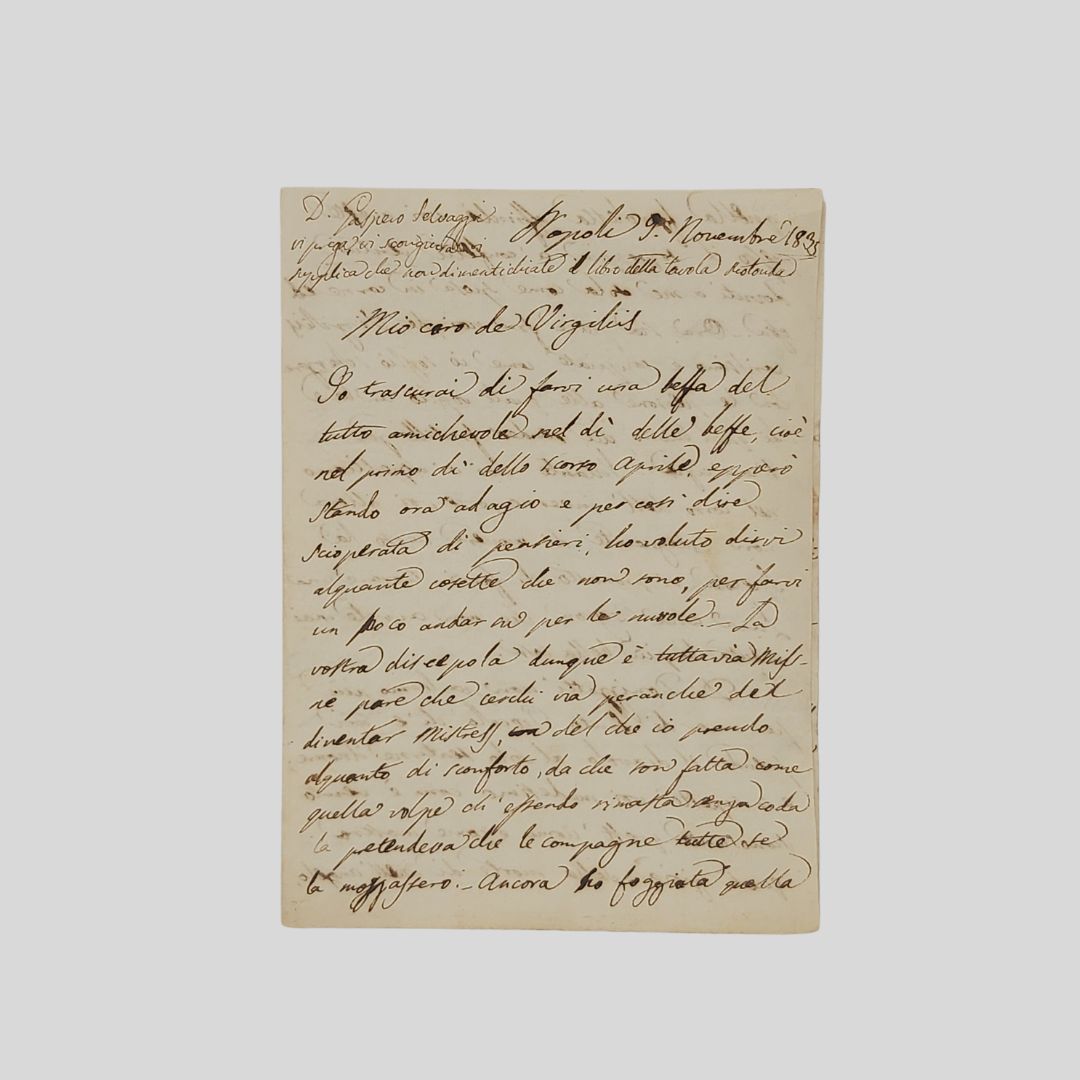 D. Gaspero Selvaggi
Napoli 9. Novembre 183
vi prega, vi scongiura, vi
supplica che non dimentichiate il libro della tavola rotonda
Mio caro de Virgiliis
Io trascurai di farvi una beffa del
tutto amichevole nel dì delle beffe, cioè
nel primo dì dello scorso Aprile, epperò
stando ora ad agio e per così dire
scioperata di pensieri, ho voluto dirvi
alquante cosette che non sono, per farvi
un poco andar su per le nuvole. – La
vostra discepola dunque è tuttavia Miss –
nè pare che cerchi via per anche del
diventar Mistress, del che io prendo
alquanto di sconforto, da che son fatta come
quella volpe ch'essendo rimasta senza coda
la pretendeva che le compagne tutte se
la mozzassero. – Ancora ho foggiata quella